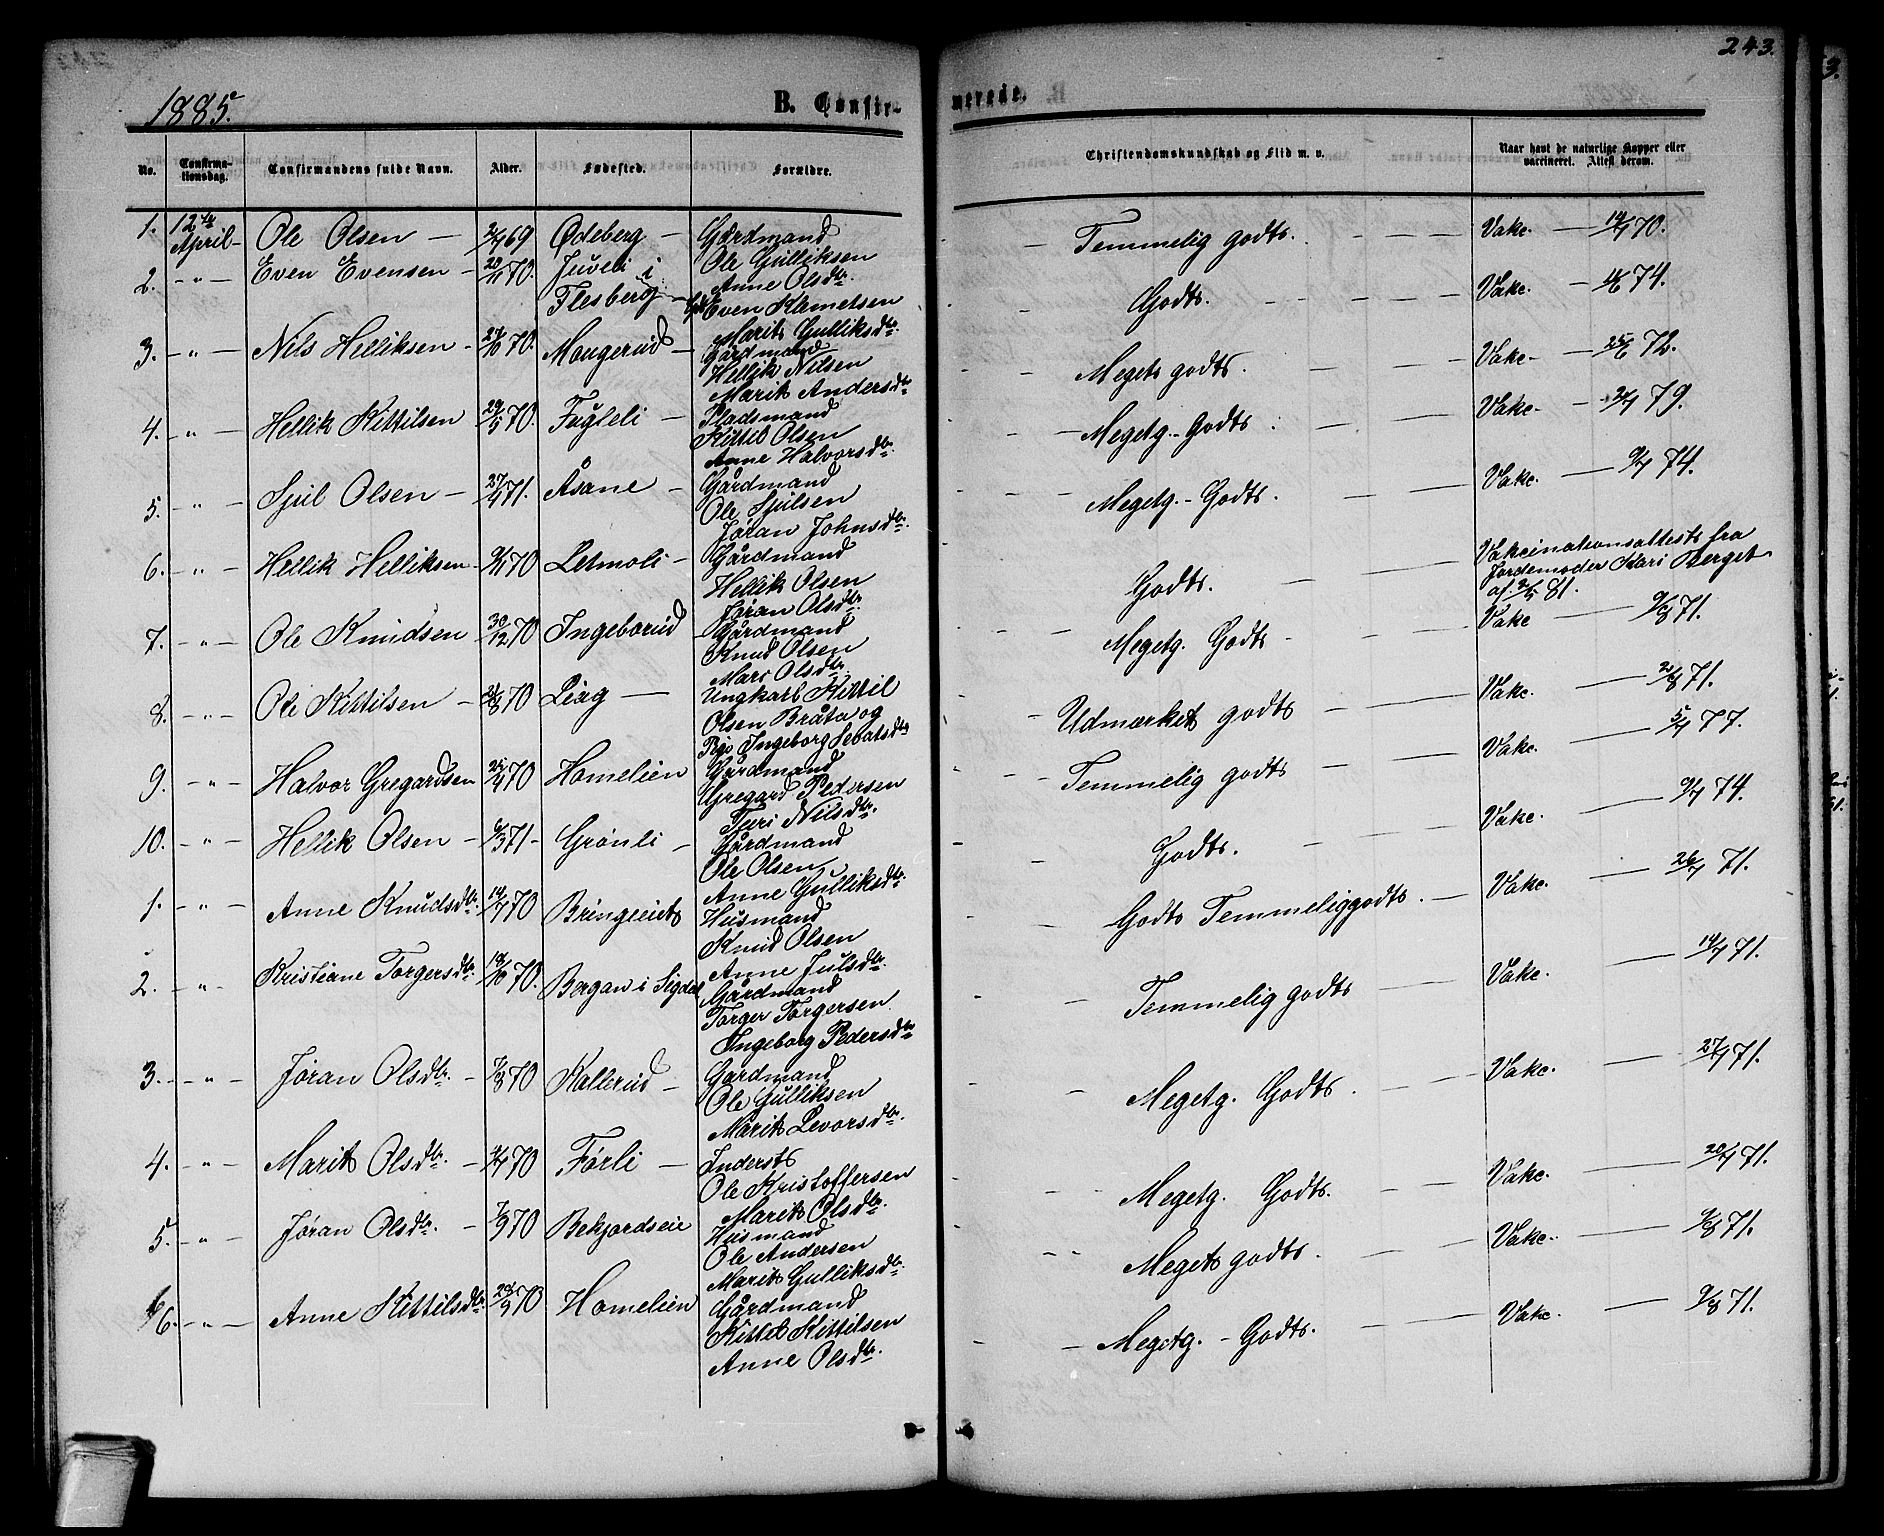 243.
1885.
B. Confir-
merede.
No.
Confirma-
tionsdag.
Confirmandens fulde Navn.
Alder.
Fødested.
Forældre.
Christendomskundskab og Flid m. v.
Naar havt de naturlige Kopper eller
vaccineret. Attest derom.
1. 12te April – Ole Olsen – 2/4 69 Ødeberg – Gårdmand
Ole Gulliksen
Anne Olsdtr.
Temmelig godt. Vakc. – 14/4 70.
2. – " – Even Evensen – 20/11 70. Juveli i
Flesberg – Gd. Even Knutsen
Marit Gulliksdtr.
Godt. Vakc. – 74.
3. – " – Nils Helliksen – 70. Mougerud – Gårdmand
Hellik Nilsen
Marit Andersdtr.
Meget godt. Vakc. – 25/6 72.
4. – " – Hellik Kittilsen 29/5 70. Fugleli – Pladsmand
Kittil Olsen
Anne Halvorsdtr.
Megetg. – Godt. Vakc. – 79.
5. – " – Sjul Olsen – 27/4 71. Åsane – Gårdmand
Ole Sjulsen
Jøran Johnsdtr.
Megetg. – Godt. Vakc. – 9/7 74.
6. – " – Hellik Helliksen 70 Letmoli – Gårdmand
Hellik Olsen
Jøran Olsdtr.
Godt. Vakcinationsattest fra
Jordemoder Kari Berget
af 81.
7. – " – Ole Knudsen 30/12 70 Ingeborud – Gårdmand
Knud Olsen
Mari Olsdtr.
Megetg. Godt – Vakc – 9/8 71.
8. – " – Ole Kittilsen – 70 Liag – Ungkarl Kittil
Olsen Bråta og
Pige Ingeborg Sebatsdtr
Udmærket godt – Vakc. – 71.
9. – " – Halvor Gregardsen 70 Homelien Gårdmand
Gregard Pedersen
Turi Nilsdtr.
Temmelig godt – Vakc. – 5/7 77.
10. – " – Hellik Olsen – 6/3 71 – Grønli – Gårdmand
Ole Olsen
Anne Gulliksdtr.
Godt. Vakc. – 9/7 74.
1. – " – Anne Knudsdtr. 14/7 70 Bringeiet Husmand
Knud Olsen
Anne Julsdtr.
Godt Temmeliggodt. – Vakc. – 26/7 71.
2. – " – Kristiane Torgersdtr. 18/10 70. Bergan i Sigdal Gårdmand
Torger Torgersen
Ingeborg Pedersdtr
Temmelig godt – Vakc. – 14/7 71.
3. – " – Jøran Olsdtr. – 7/8 70 Kallerud – Gårdmand
Ole Gulliksen
Marit Levorsdtr.
Megetg. Godt. Vakc. – 27/7 71.
4. – " – Marit Olsdtr. – 70 Førli – Inderst
Ole Kristoffersen
Marit Olsdtr.
Megetg. Godt. – Vakc. – 20/7 71.
5. – " – Jøran Olsdtr. – 7/9 70 Bekjordseie Husmand
Ole Andersen
Marit Gulliksdtr.
Meget godt. Vakc. – 9/8 71.
6. – " – Anne Kittilsdtr. 70 Homelien Gårdmand
Kittil Kittilsen
Anne Olsdtr.
Megetg. – Godt. Vakc. – 9/8 71.